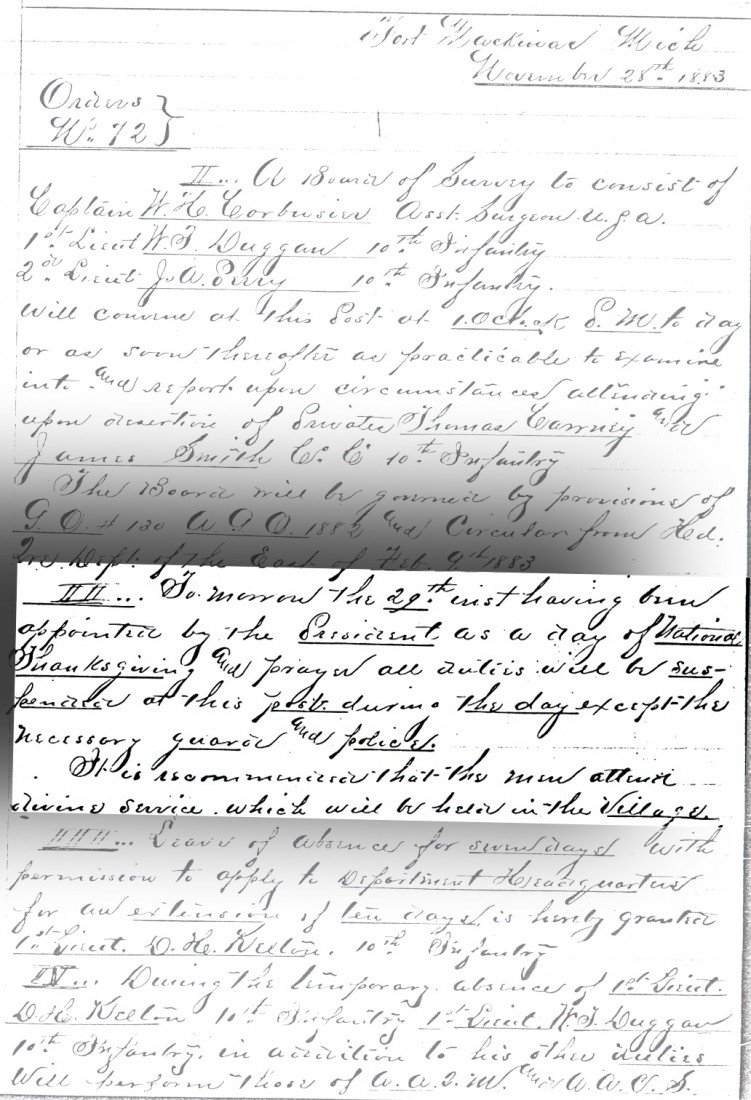 Fort Mackinac Mich
November 28th 1883
Orders
No. 72
II... A Board of Survey to consist of
Captain W. H. Corbusier Asst. Surgeon U.S.A.
1st Lieut W. T. Duggan 10th Infantry
2d Lieut J. A. Perry 10th Infantry.
Will convene at this Post at 1. Oclock P. M. to day
or as soon thereafter as practicable to examine
into and report upon circumstances attending
upon desertion of Privates Thomas Carney and
James Smith Co. C 10th Infantry
The Board will be governed by provisions of
G. O. # 130 A. G. O. 1882 and Circular from Hd.
Qrs. Dept. of the East of Feb. 9th 1883
III... To-morrow the 29th inst having been
appointed by the President as a day of National
Thanksgiving and prayer all duties will be sus-
pended at this post during the day except the
necessary guard and police.
It is recommended that the men attend
divine service which will be held in the Village.
IIII... Leave of absence for seven days with
permission to apply to Department Headquarters
for an extension of ten days, is hereby granted
1st Lieut. D. H. Kelton, 10th Infantry
IV... During the temporary absence of 1st Lieut.
D. H. Kelton 10th Infantry 1st Lieut. W. T. Duggan
10th Infantry in addition to his other duties
Will perform those of A. A. Q. M. and A. A. C. S.